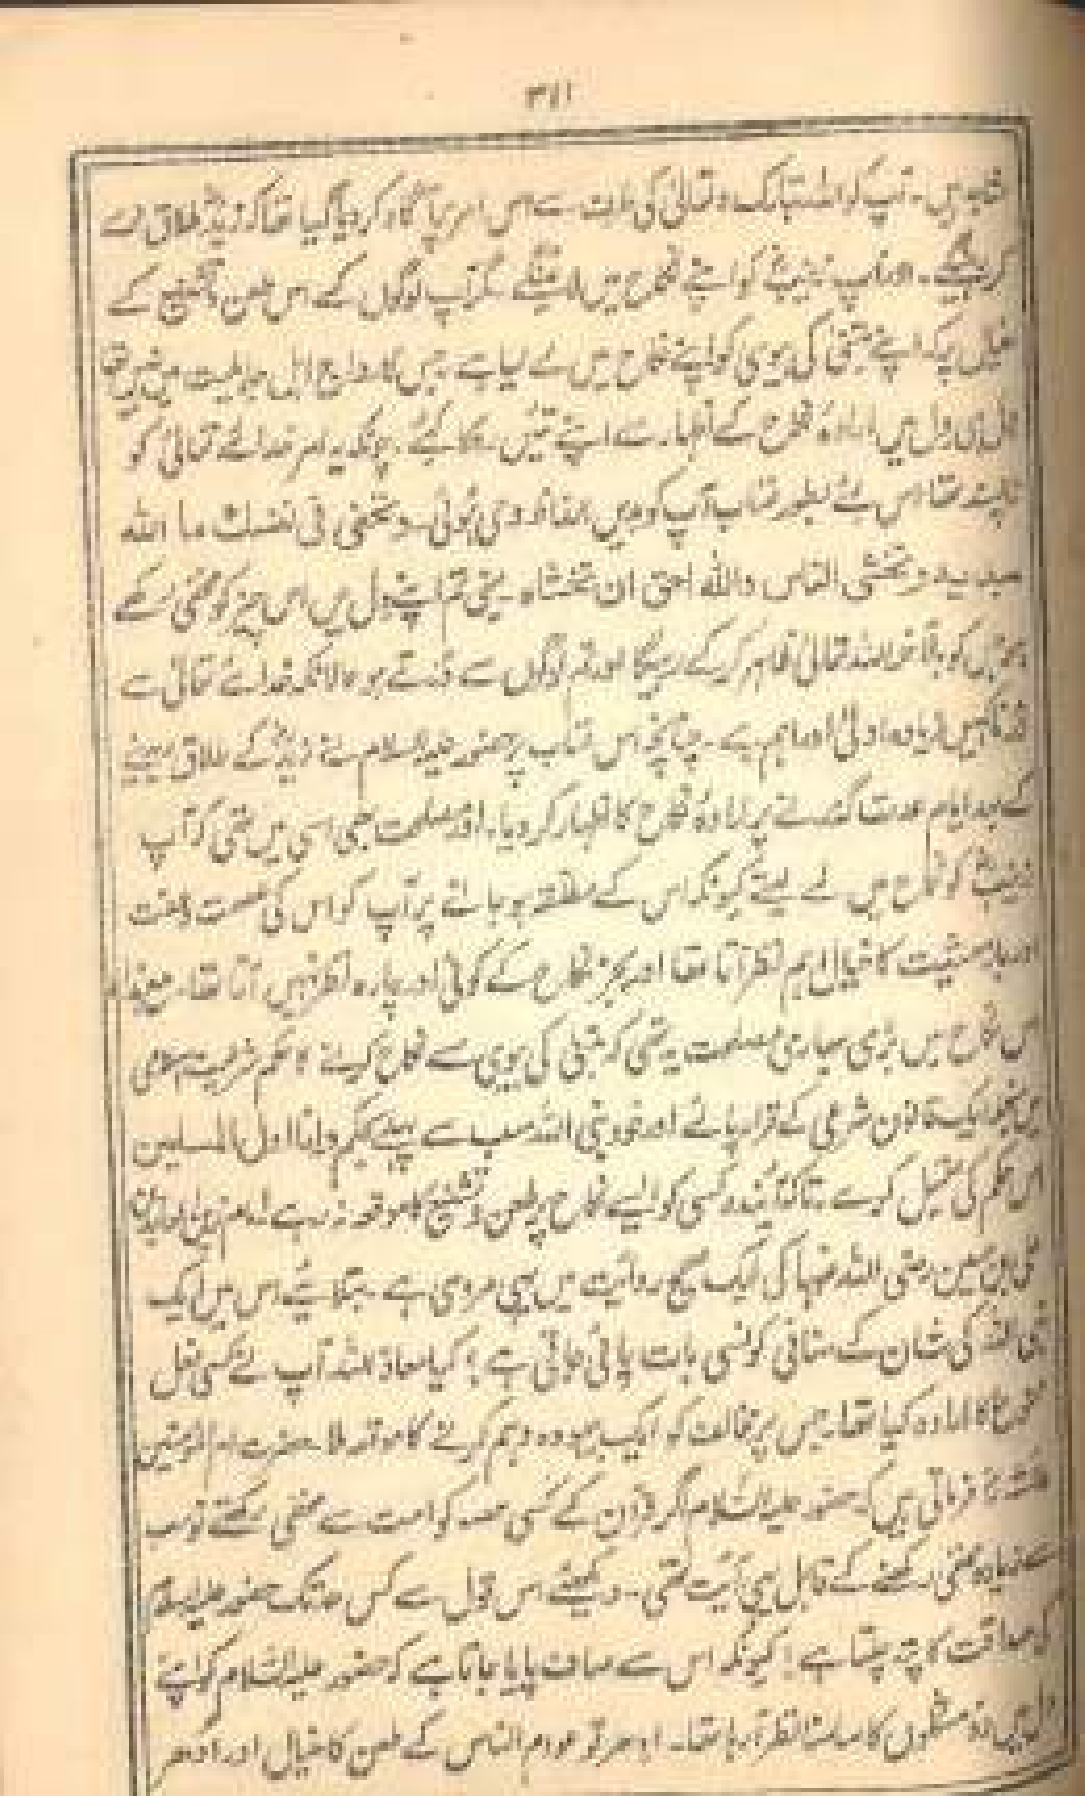 ۳۱۱
شاہد ہیں۔ آپ کو اللہ تبارک و تعالیٰ کی طرف سے اس امر پر آگاہ کر دیا گیا تھا کہ زیدؓ طلاق
اور آپ زینبؓ کو اپنے نکاح میں لائینگے۔ مگر آپ لوگوں کے اس طعن و تشنیع کے
خیال پر کہ اپنے متبنّٰی کی بیوی کو اپنے نکاح میں لے لیا ہے۔ جس کا رواج اہل جاہلیت میں نہیں تھا
دل میں ارادۂ نکاح کے اظہار سے اپنے تئیں روکا کیے۔ چونکہ یہ امر خدائے تعالیٰ کو
ناپسند تھا اس لئے بطور عتاب آپ کو بدیں الفاظ وحی ہوئی۔ وتخفی فی نفسک ما اللہ
مبدیہ وتخشی الناس واللہ احق ان تخشاہ۔ یعنی تم اپنے دل میں اس چیز کو مخفی رکھے
ہو جس کو بالآخر اللہ تعالیٰ ظاہر کر کے رہیگا اور تم لوگوں سے ڈرتے ہو حالانکہ خدائے تعالیٰ سے
ڈرنا کہیں زیادہ اولیٰ اور اہم ہے۔ چنانچہ اس عتاب پر حضور علیہ السلام نے زیدؓ کے طلاق دینے
کے بعد ایام عدت گذرنے پر ارادۂ نکاح کا اظہار کر دیا۔ اور مصلحت بھی اسی میں تھی کہ آپ
زینبؓ کو نکاح میں لے لیتے کیونکہ اس کے مطلّقہ ہو جانے پر آپ کو اس کی عصمت و عفت
اور کا خیال اہم نظر آتا تھا اور بجز نکاح کے کوئی اور چارہ نظر نہیں آتا تھا۔
اس نکاح میں بڑی بھاری مصلحت یہ تھی کہ متبنّٰی کی بیوی سے نکاح کرنے کا حکم شریعت اسلامی
میں منجملہ ایک قانون شرعی کے قرار پائے اور خود نبی اللہ سب سے پہلے بحکم وانا اول المسلمین
اس حکم کی تعمیل کرے۔ تاکہ آئندہ کسی کو ایسے نکاح پر طعن و تشنیع کا موقعہ نہ رہے۔ امام زین العابدین
علی بن حسین رضی اللہ عنہا کی ایک صحیح روایت میں یہی مروی ہے۔ بتائیے اس میں ایک
نبی اللہ کی شان کے منافی کونسی بات پائی جاتی ہے؟ کیا معاذ اللہ آپ نے کسی فعل
کا ارادہ کیا تھا۔ جس پر مخالف کو ایک بیہودہ وہم کرنے کا موقعہ ملا۔ حضرت ام المؤمنین
فرماتی ہیں کہ حضور علیہ السلام اگر قرآن کے کسی حصہ کو امت سے مخفی رکھتے تو سب
سے زیادہ مخفی رکھنے کے قابل یہی آیت تھی۔ دیکھئے اس قول سے کس حد تک حضور علیہ السلام
کی صداقت کا پتہ چلتا ہے! کیونکہ اس سے صاف پایا جاتا ہے کہ حضور علیہ السلام کو اپنے
دل میں دو مشکلوں کا سامنا نظر آرہا تھا۔ ادھر تو عوام الناس کے طعن کا خیال اور ادھر